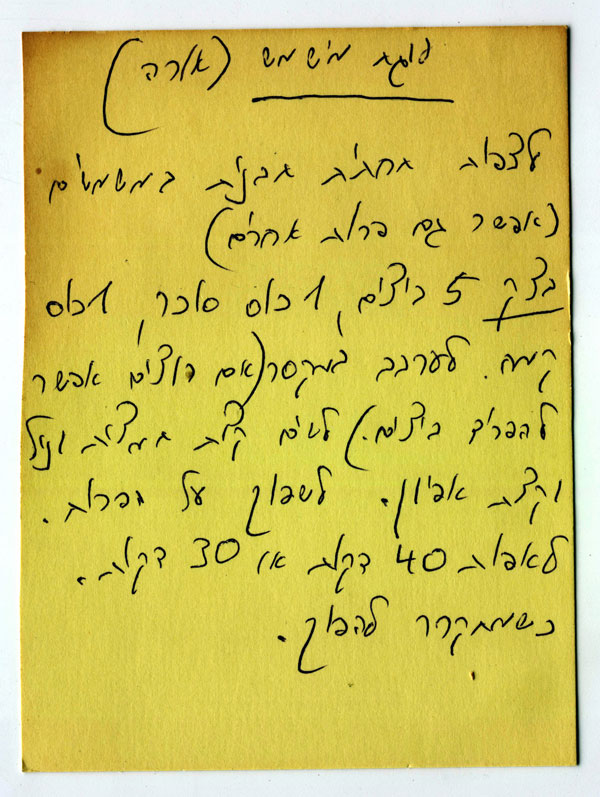 עוגת מישמש (אורה)
לצפות תחתית תבנית במשמשים
(אפשר גם פרות אחרים)
בצק 5 ביצים, 1 כוס סוכר, 1 כוס
קמח. לערבב במקסר (אם רוצים אפשר
להפריד ביצים.) לשים קצת תמצית וניל
וקצת אפיון. לשפוך על הפרות.
לאפות 40 דקות או 30 דקות.
כשמתקרר להפוך.